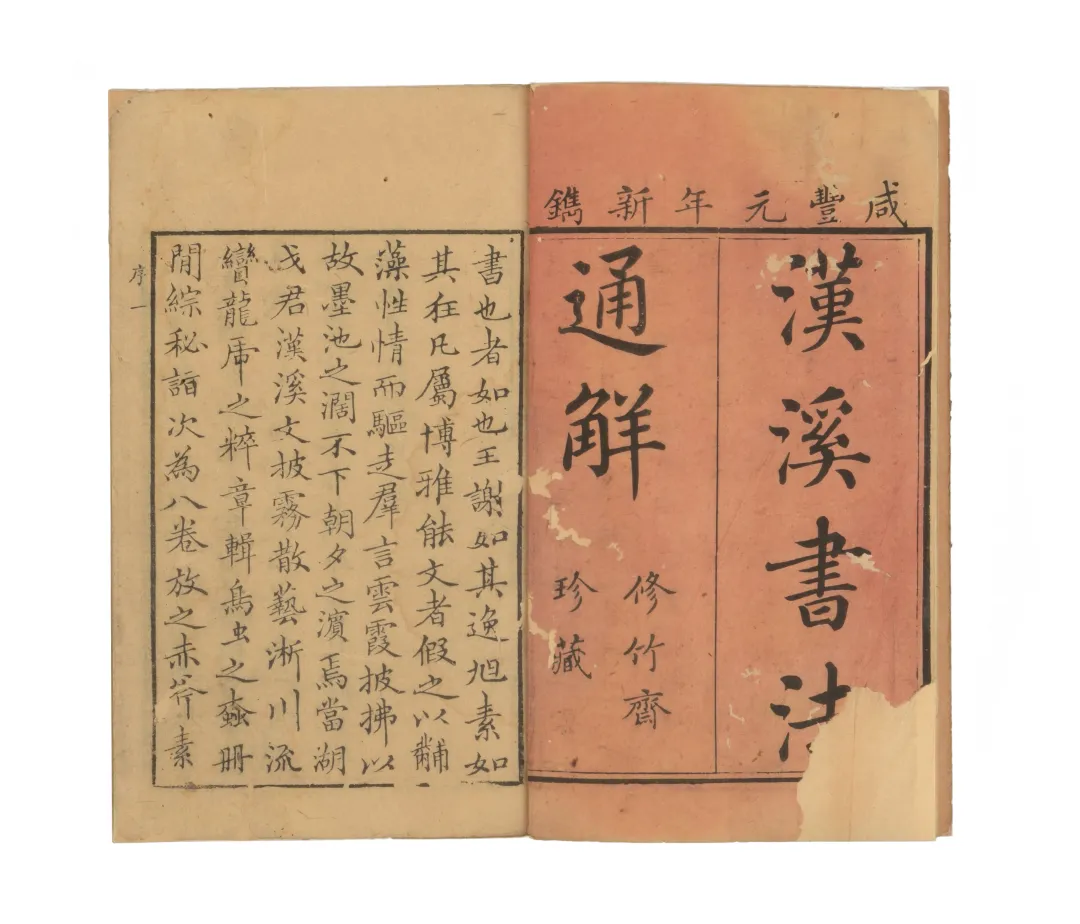 咸豐元年新鐫
漢溪書法
通解
修竹齋
珍藏
書也者如也王謝如其逸旭素如
其狂凡屬博雅能文者假之以黼
藻性情而驅走羣言雲霞披拂以
故墨池之濶不下朝夕之濵焉當湖
戈君漢溪文披霧散藝淅川流
臠龍乕之粹章輯鳥虫之蟲冊
閒綜秘詣次為八卷放之赤斧素
序一